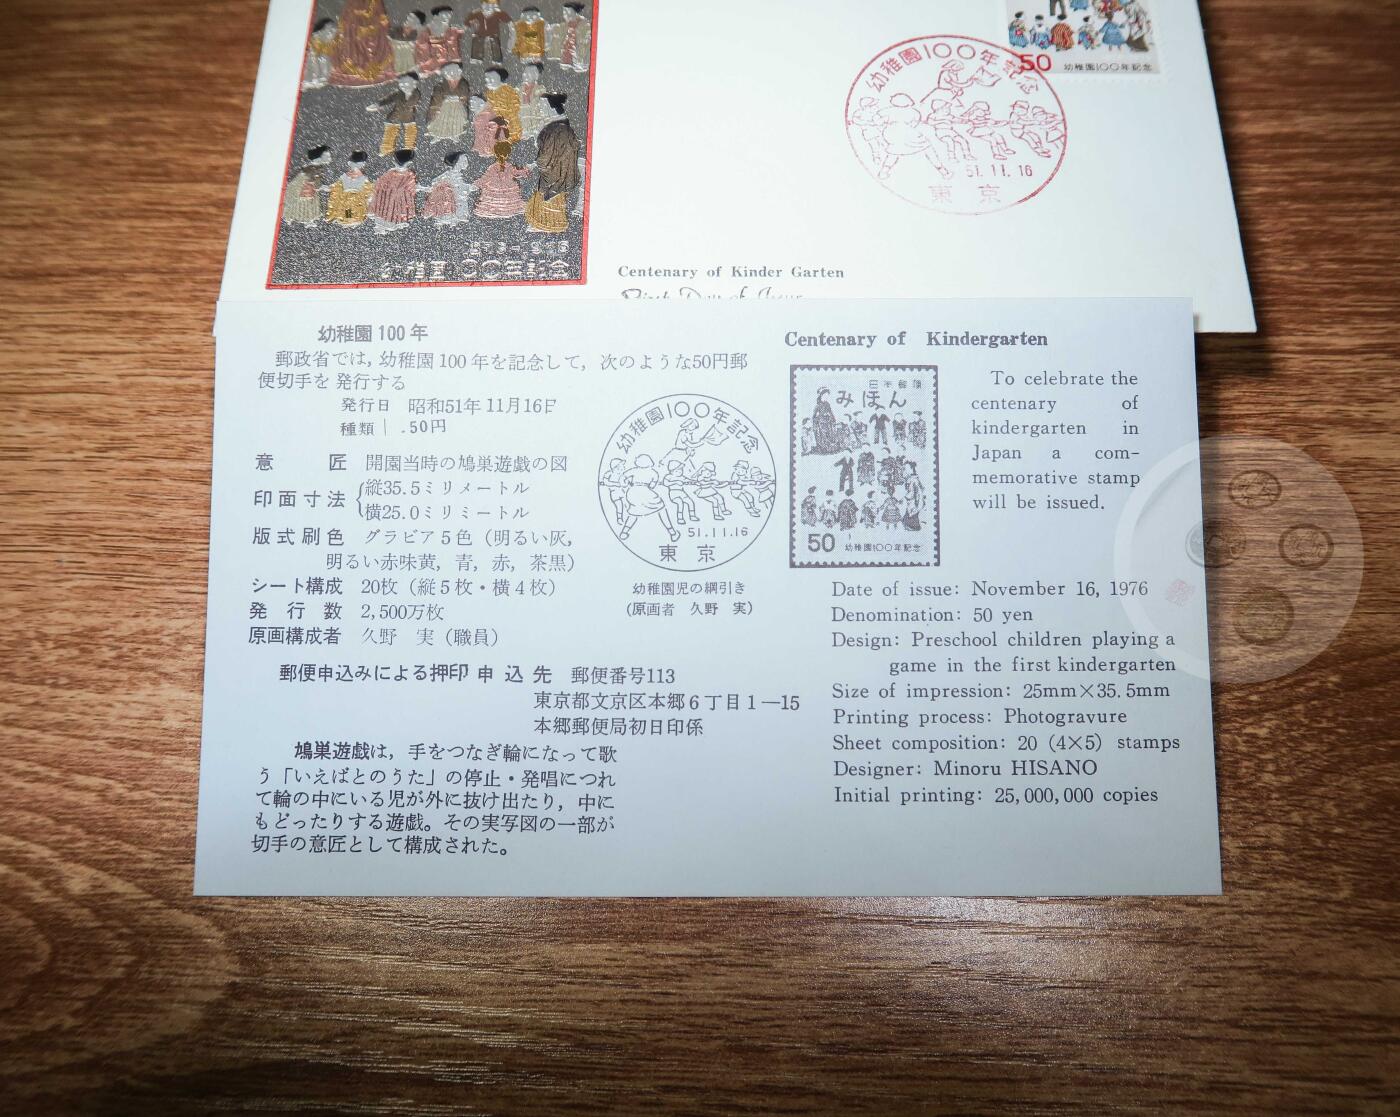 50 幼稚園100年記念
幼稚園100年記念
51.11.16
東京
Centenary of Kinder Garten
First Day of Issue
幼稚園100年
郵政省では,幼稚園100年を記念して,次のような50円郵
便切手を発行する
発行日 昭和51年11月16
種類 .50円
意匠 開園当時の鳩巣遊戯の図
印面寸法 縦35.5ミリメートル
横25.0ミリミートル
版式刷色 グラビア5色(明るい灰,
明るい赤味黄,青,赤,茶黒)
シート構成 20枚(縦5枚・横4枚)
発行数 2,500万枚
原画構成者 久野 実(職員)
幼稚園100年記念
51.11.16
東京
幼稚園児の綱引き
(原画者 久野 実)
郵便申込みによる押印申込先 郵便番号113
東京都文京区本郷6丁目1—15
本郷郵便局初日印係
鳩巣遊戯は,手をつなぎ輪になって歌
う「いえばとのうた」の停止・発唱につれ
て輪の中にいる児が外に抜け出たり,中に
もどったりする遊戯。その実写図の一部が
切手の意匠として構成された。
Centenary of Kindergarten
日本郵便
みほん
50 幼稚園100年記念
To celebrate the
centenary of
kindergarten in
Japan a com-
memorative stamp
will be issued.
Date of issue: November 16, 1976
Denomination: 50 yen
Design: Preschool children playing a
game in the first kindergarten
Size of impression: 25mm×35.5mm
Printing process: Photogravure
Sheet composition: 20 (4×5) stamps
Designer: Minoru HISANO
Initial printing: 25,000,000 copies